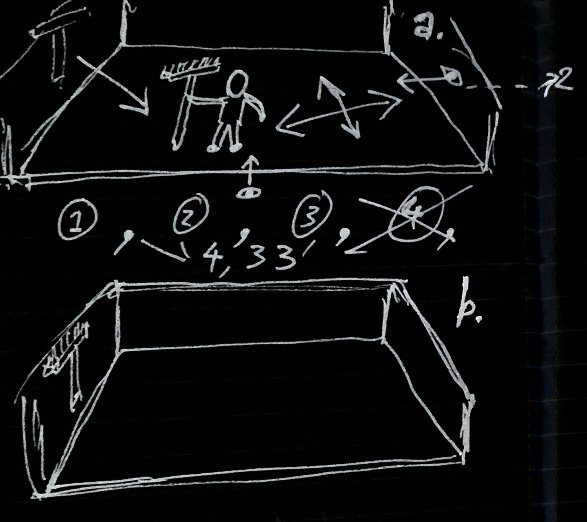 a.
→2
① ② ③ ④
4,33
b.